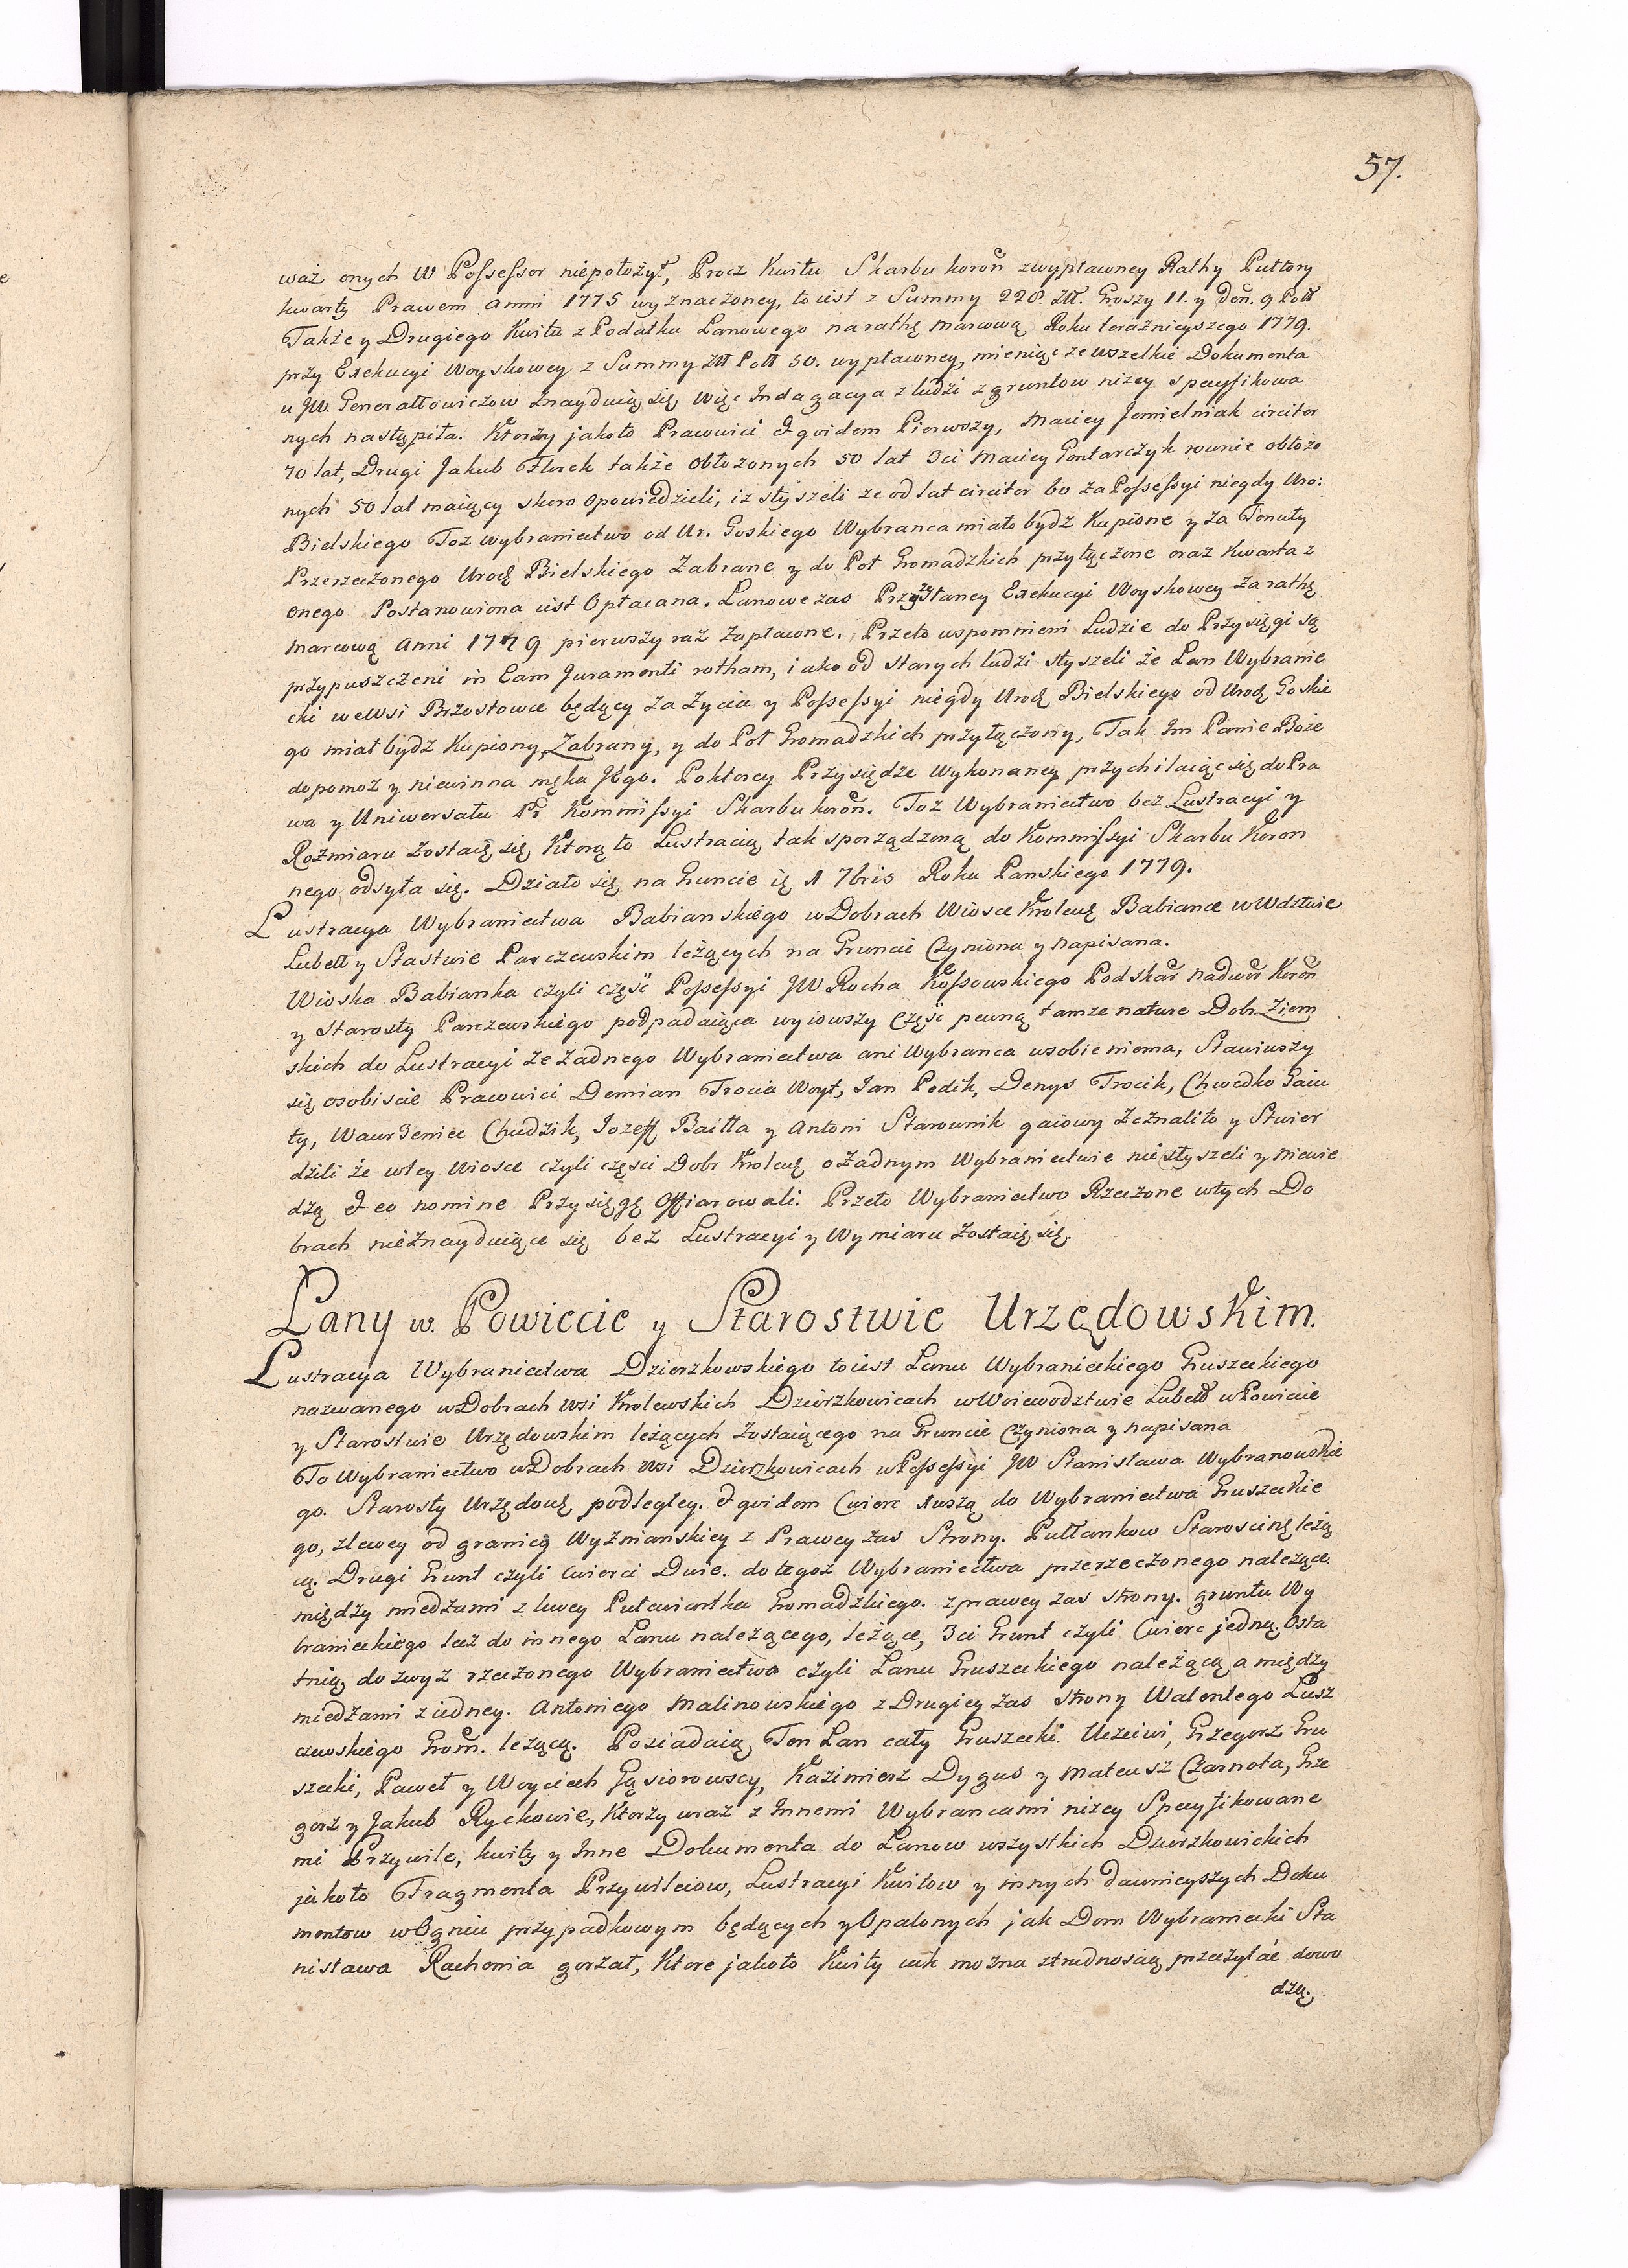 57.
waż onych W Possessor niepołożył, Procz Kwitu Skarbu koroñ zwypławney Rathy Pułtory
kwarty Prawem Anni 1775 wyznaczoney, to iest z Summy 228. Złł. Groszy 11. y Deñ. 9 Poll
Także y Drugiego Kwitu z Podatku Lanowego na rathę marcową Roku teraznieyszego 1779.
przy Exekucyi Woyskowey z Summy Złł Poll 50. wypławney, mieniąc ze wszelkie Dokumenta
u JW. Generałłowiczow znayduią się więc Indagacya z ludzi z gruntow nizey specyfikowa
nych nastąpiła. Ktorzy jakoto Prawwici & qvidem Pierwszy, Maciey Jemielniak circiter
70 lat, Drugi Jakub Florek także obłozonych 50 lat 3ci Maciey Gontarczyk rownie obłożo
nych 50 lat maiący skoro opowiedzieli, iz słyszeli ze od lat circiter 60 za Possessyi niegdy Uro:
Bielskiego Toz wybraniectwo od Ur. Goskiego Wybranca miało bydź Kupione y za Tenuty
Przerzeczonego Urodź Bielskiego Zabrane y do Pol Gromadzkich przyłączone oraz Kwarta z
onego Postanowiona iest Opłacana. Lanowe zas Przyzesłaney Exekucyi Woyskowey za rathę
marcową Anni 1779 pierwszy raz zapłacone. Przeto wspomnieni Ludzie do Przysięgi są
przypuszczeni in Eam Juramenti rotham, iako od starych ludzi słyszeli że Łan Wybranie
cki we wsi Brzostowce będący za życia y Possessyi niegdy Urodź Bielskiego od Urodź Goskie
go miał bydź Kupiony, Zabrany, y do Pol Gromadzkich przyłączony, Tak Im Panie Boże
dopomoż y niewinna męka Jego. Poktorey Przysiędze wykonaney przychilaiąc się do Pra
wa y Uniwersału Pr Kommissyi Skarbu koroñ. Toz Wybraniectwo bez Lustracyi y
Rozmiaru zostaię się Ktorą to Lustracią tak sporządzoną do Kommissyi Skarbu Koron
nego odsyła się. Działo się na Gruncie ię 1 7bris Roku Panskiego 1779.
Lustracya Wybraniectwa Babianskiego w Dobrach Wiosce Krolewę Babiance w Wdztwie
Lubell y Stastwie Parczewskim leżących na Gruncie Czyniona y napisana.
Wioska Babianka czyli część Possessyi JW Rocha Kossowskiego Podskar nadwor Koroñ
y Starosty Parczewskiego podpadaiąca wyiowszy Część pewną tamze nature Dobr Ziem
skich do Lustracyi ze żadnego Wybraniectwa ani Wybranca w sobie niema, Stawiwszy
się osobiscie Prawwici Demian Trocia Woyt, Jan Pedik, Denys Trocik, Chwedko Gaiu
ty, Wawrzeniec Chudzik, Jozeff Baitła y Antoni Starownik gaiowy Zeznali to y Stwier
dzili że w tey Wiosce czyli części Dobr Krolewę o żadnym Wybraniectwie nie słyszeli y niewie
dzą & eo nomine Przysięgę Offiarowali. Przeto Wybraniectwo Rzeczone w tych Do
brach nieznayduiące się bez Lustracyi y Wymiaru zostaię się.
Lany w. Powiecie y Starostwie Urzędowskim.
Lustracya Wybraniectwa Dzierzkowskiego to iest Lanu Wybranieckiego Gruszeckiego
nazwanego w Dobrach Wsi Krolewskich Dzierzkowicach w Woiewodztwie Lubell w Powiecie
y Starostwie Urzędowskim leżących Zostaiącego na Gruncie Czyniona y napisana
To Wybraniectwo w Dobrach Wsi Dzierzkowicach w Possessyi JW Stanisława Wybranowskie
go. Starosty Urzędowę podległey. & qvidem Cwierc 1wszą do Wybraniectwa Gruszeckie
go, z lewey od granicę Wyżnianskiey z Prawey zas Strony. Pułłankow Staroscinę leżą
cą. Drugi Grunt czyli Cwierci Dwie. do tegoż Wybraniectwa przerzeczonego należące.
między miedzami z lewey Pułcwiartka Gromadzkiego. z prawey zas strony. gruntu Wy
branieckiego lecz do innego Lanu należącego, leżące, 3ci Grunt czyli Cwierc jedną. Osta
tnią do zwyz rzeczonego Wybraniectwa czyli Lanu Gruszeckiego należącą a między
miedzami z iedney. Antoniego Malinowskiego z Drugiey zas strony Walentego Lusz
czewskiego Grom. leżącą. Posiadaią Ten Lan cały Gruszecki. Ucziwi, Grzegorz Gru
szecki, Paweł y Woyciech Gąsiorowscy, Kazimierz Dygus y Mateusz Czarnota, Grze
gorz y Jakub Ryckowie, Ktorzy wraz z Innemi Wybrancami nizey Specyfikowane
mi Przywile, kwity y Inne Dokumenta do Lanow wszystkich Dzierzkowickich
jakoto Fragmenta Przywileiow, Lustracyi Kwitow y innych dawnieyszych Doku
mentow w Ogniu przypadkowym będących y Opalonych jak Dom Wybraniecki Sta
nisława Rachonia gorzał, Ktore jakoto Kwity iak można z trudnoscią przeczytać dowo
dzą.